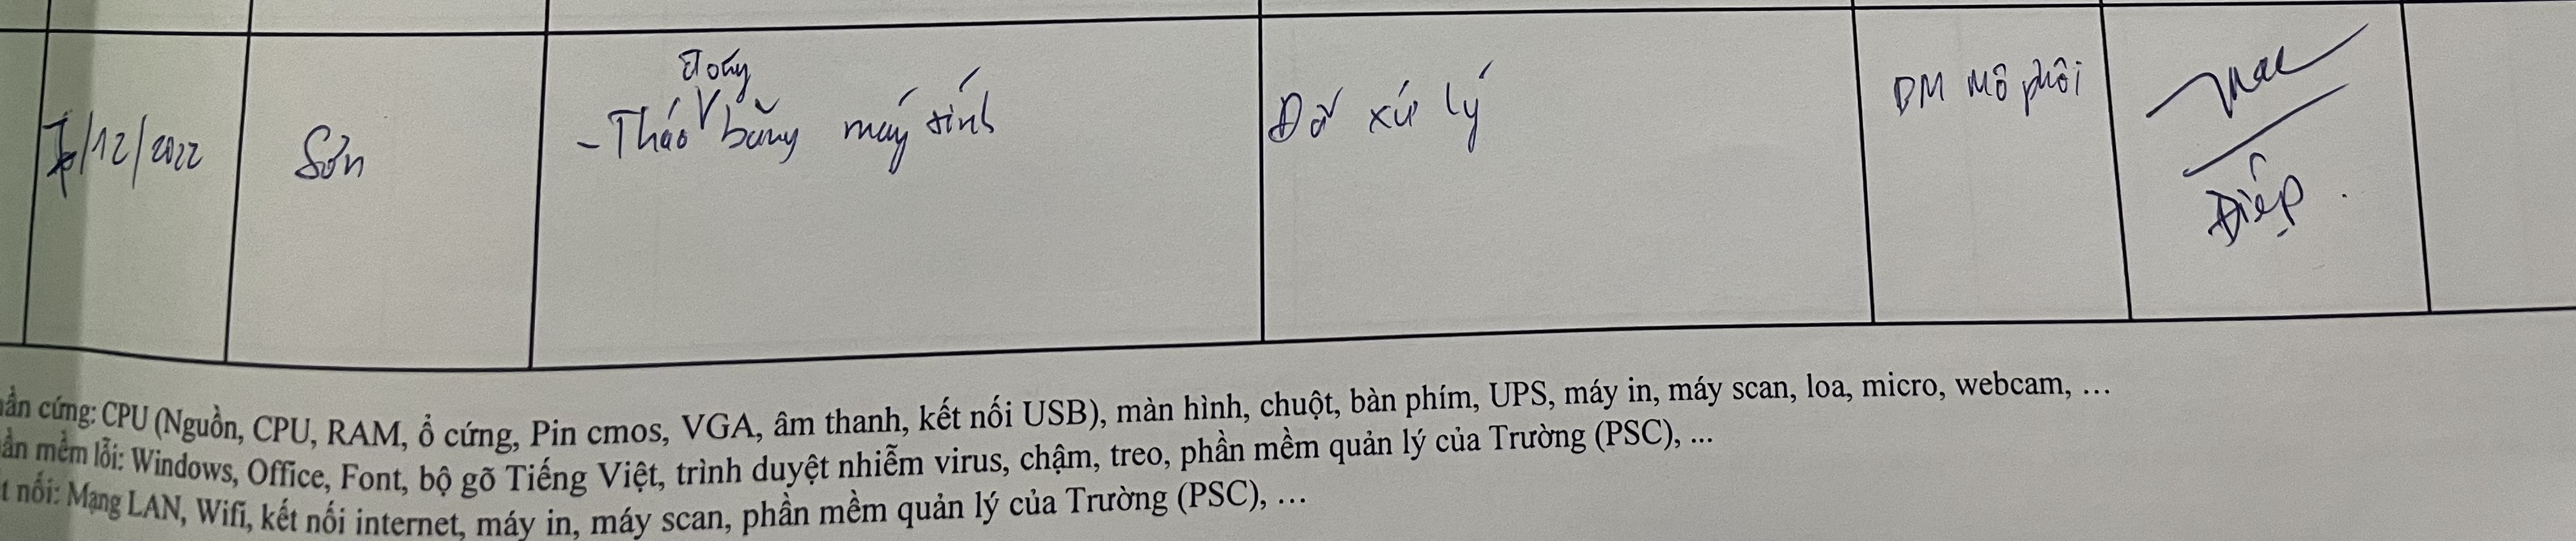 7/12/2022 Sơn - Tháo đóng băng máy tính Đã xử lý BM Mô phôi
Điệp
ần cứng: CPU (Nguồn, CPU, RAM, ổ cứng, Pin cmos, VGA, âm thanh, kết nối USB), màn hình, chuột, bàn phím, UPS, máy in, máy scan, loa, micro, webcam, ...
ần mềm lỗi: Windows, Office, Font, bộ gõ Tiếng Việt, trình duyệt nhiễm virus, chậm, treo, phần mềm quản lý của Trường (PSC), ...
t nối: Mạng LAN, Wifi, kết nối internet, máy in, máy scan, phần mềm quản lý của Trường (PSC), ...